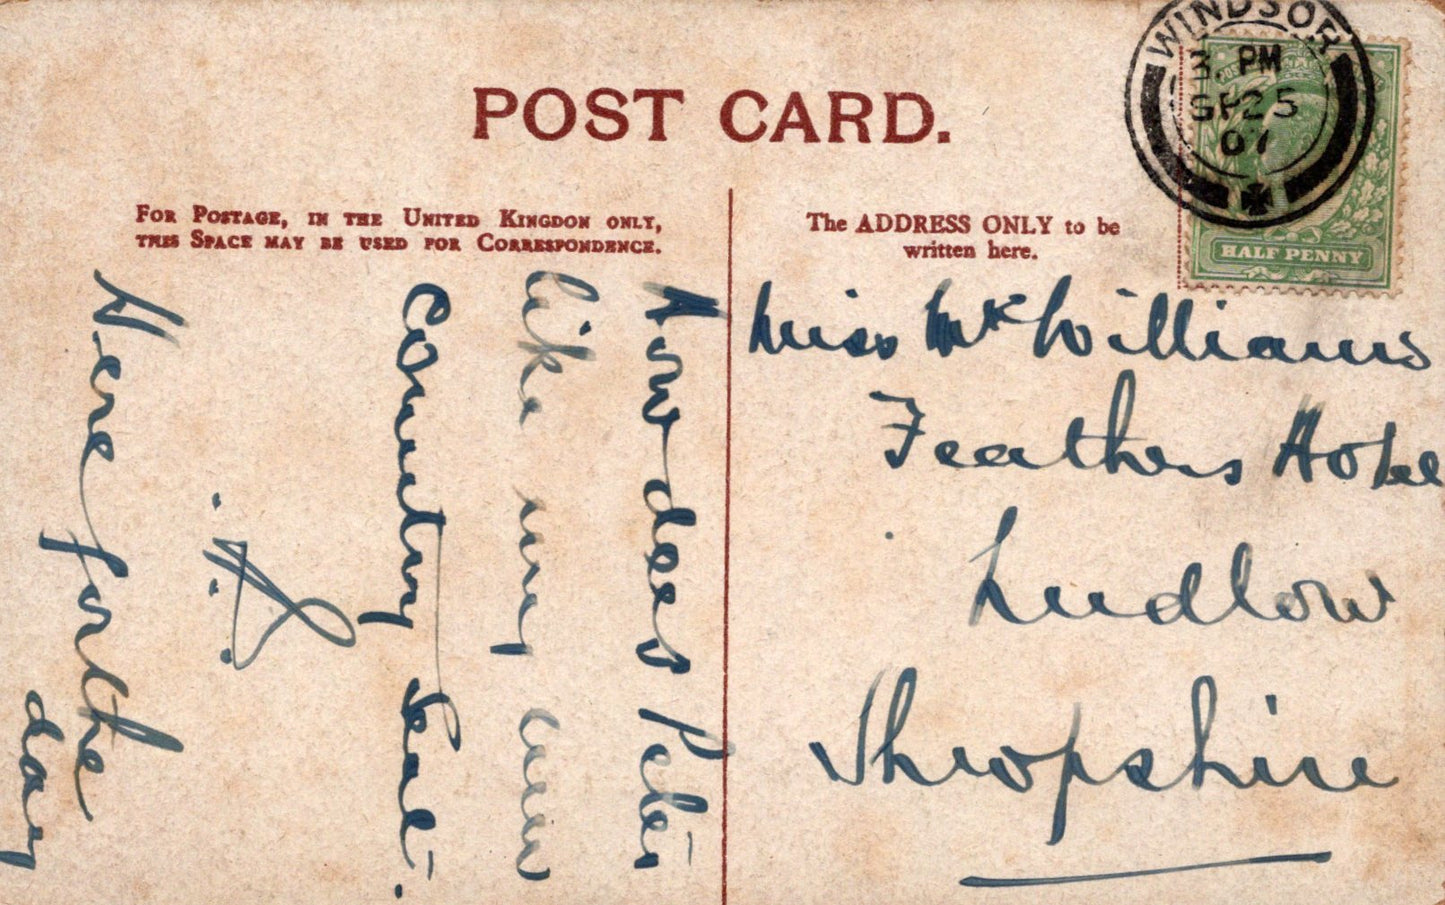 POST CARD.
FOR POSTAGE, IN THE UNITED KINGDOM ONLY,
THIS SPACE MAY BE USED FOR CORRESPONDENCE.
The ADDRESS ONLY to be
written here.
WINDSOR
3. PM
SP 25
07
HALF PENNY
How does Peter
like my new
Country Seat.
Here for the
day
Miss McWilliams
Feathers Hotel
Ludlow
Shropshire